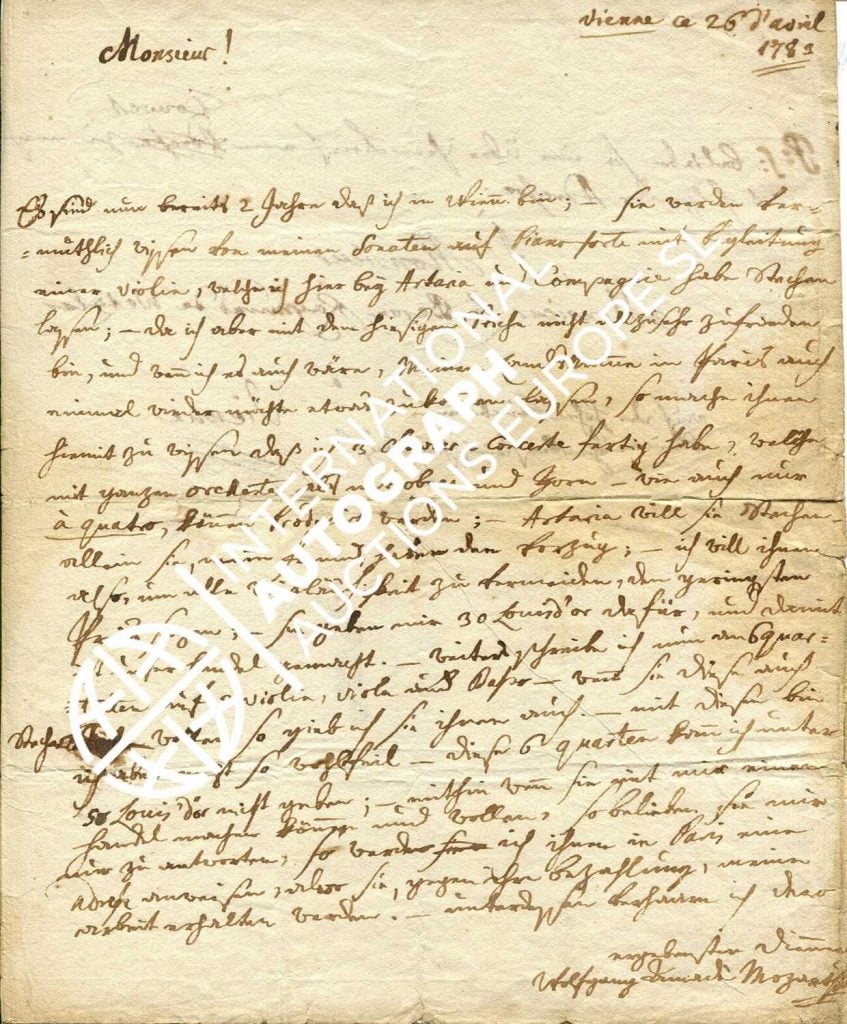 Vienne ce 26 d'avril
1783
Monsieur!
Es sind nun bereits 2 Jahre daß ich in Wienn bin; – sie werden ver=
=muthlich wissen von meinen Sonaten auf Piano forte mit begleitung
einer violin, welche ich hier bey Artaria und Compagnie habe stechen
lassen; – da ich aber mit dem hiesigen Stiche nicht allzusehr zufrieden
bin, und wenn ich es auch wäre, meinen Landsmann in Paris auch
einmal wieder möchte etwas zukommen lassen, so mache ihnen
hiemit zu wissen daß ich 3 Clavier Concerte fertig habe, welche
mit ganzen orchester, als mit oboen und Horn – wie auch nur
à quatro, können producirt werden; – Artaria will sie stechen.
allein sie, mein freund, haben den vorzug; – ich will ihnen
also, um alle Weitläufigkeit zu vermeiden, den geringsten
Preis sagen; – sie geben mir 30 Louis d'or dafür, und damit
ist unser handel gemacht. – weiters schreibe ich nun an 6 quar=
=tetten auf 2 violin, viola und Basso – wenn sie diese auch
stechen wollen so gieb ich sie ihnen auch. – mit diesen bin
ich aber nicht so wohlfeil – diese 6 quartetten kann ich unter
50 Louis'd'or nicht geben; – mithin wenn sie mit mir einen
handel machen können und wollen, so belieben sie mir
nur zu antworten, so werde ich ihnen in Paris eine
adresse anweisen, alwo sie, gegen ihre bezahlung, meine
arbeit erhalten werden. – unterdessen verharre ich dero
ergebenster Diener
Wolfgang Amadè Mozart
INTERNATIONAL
AUTOGRAPH
AUCTIONS EUROPE SL